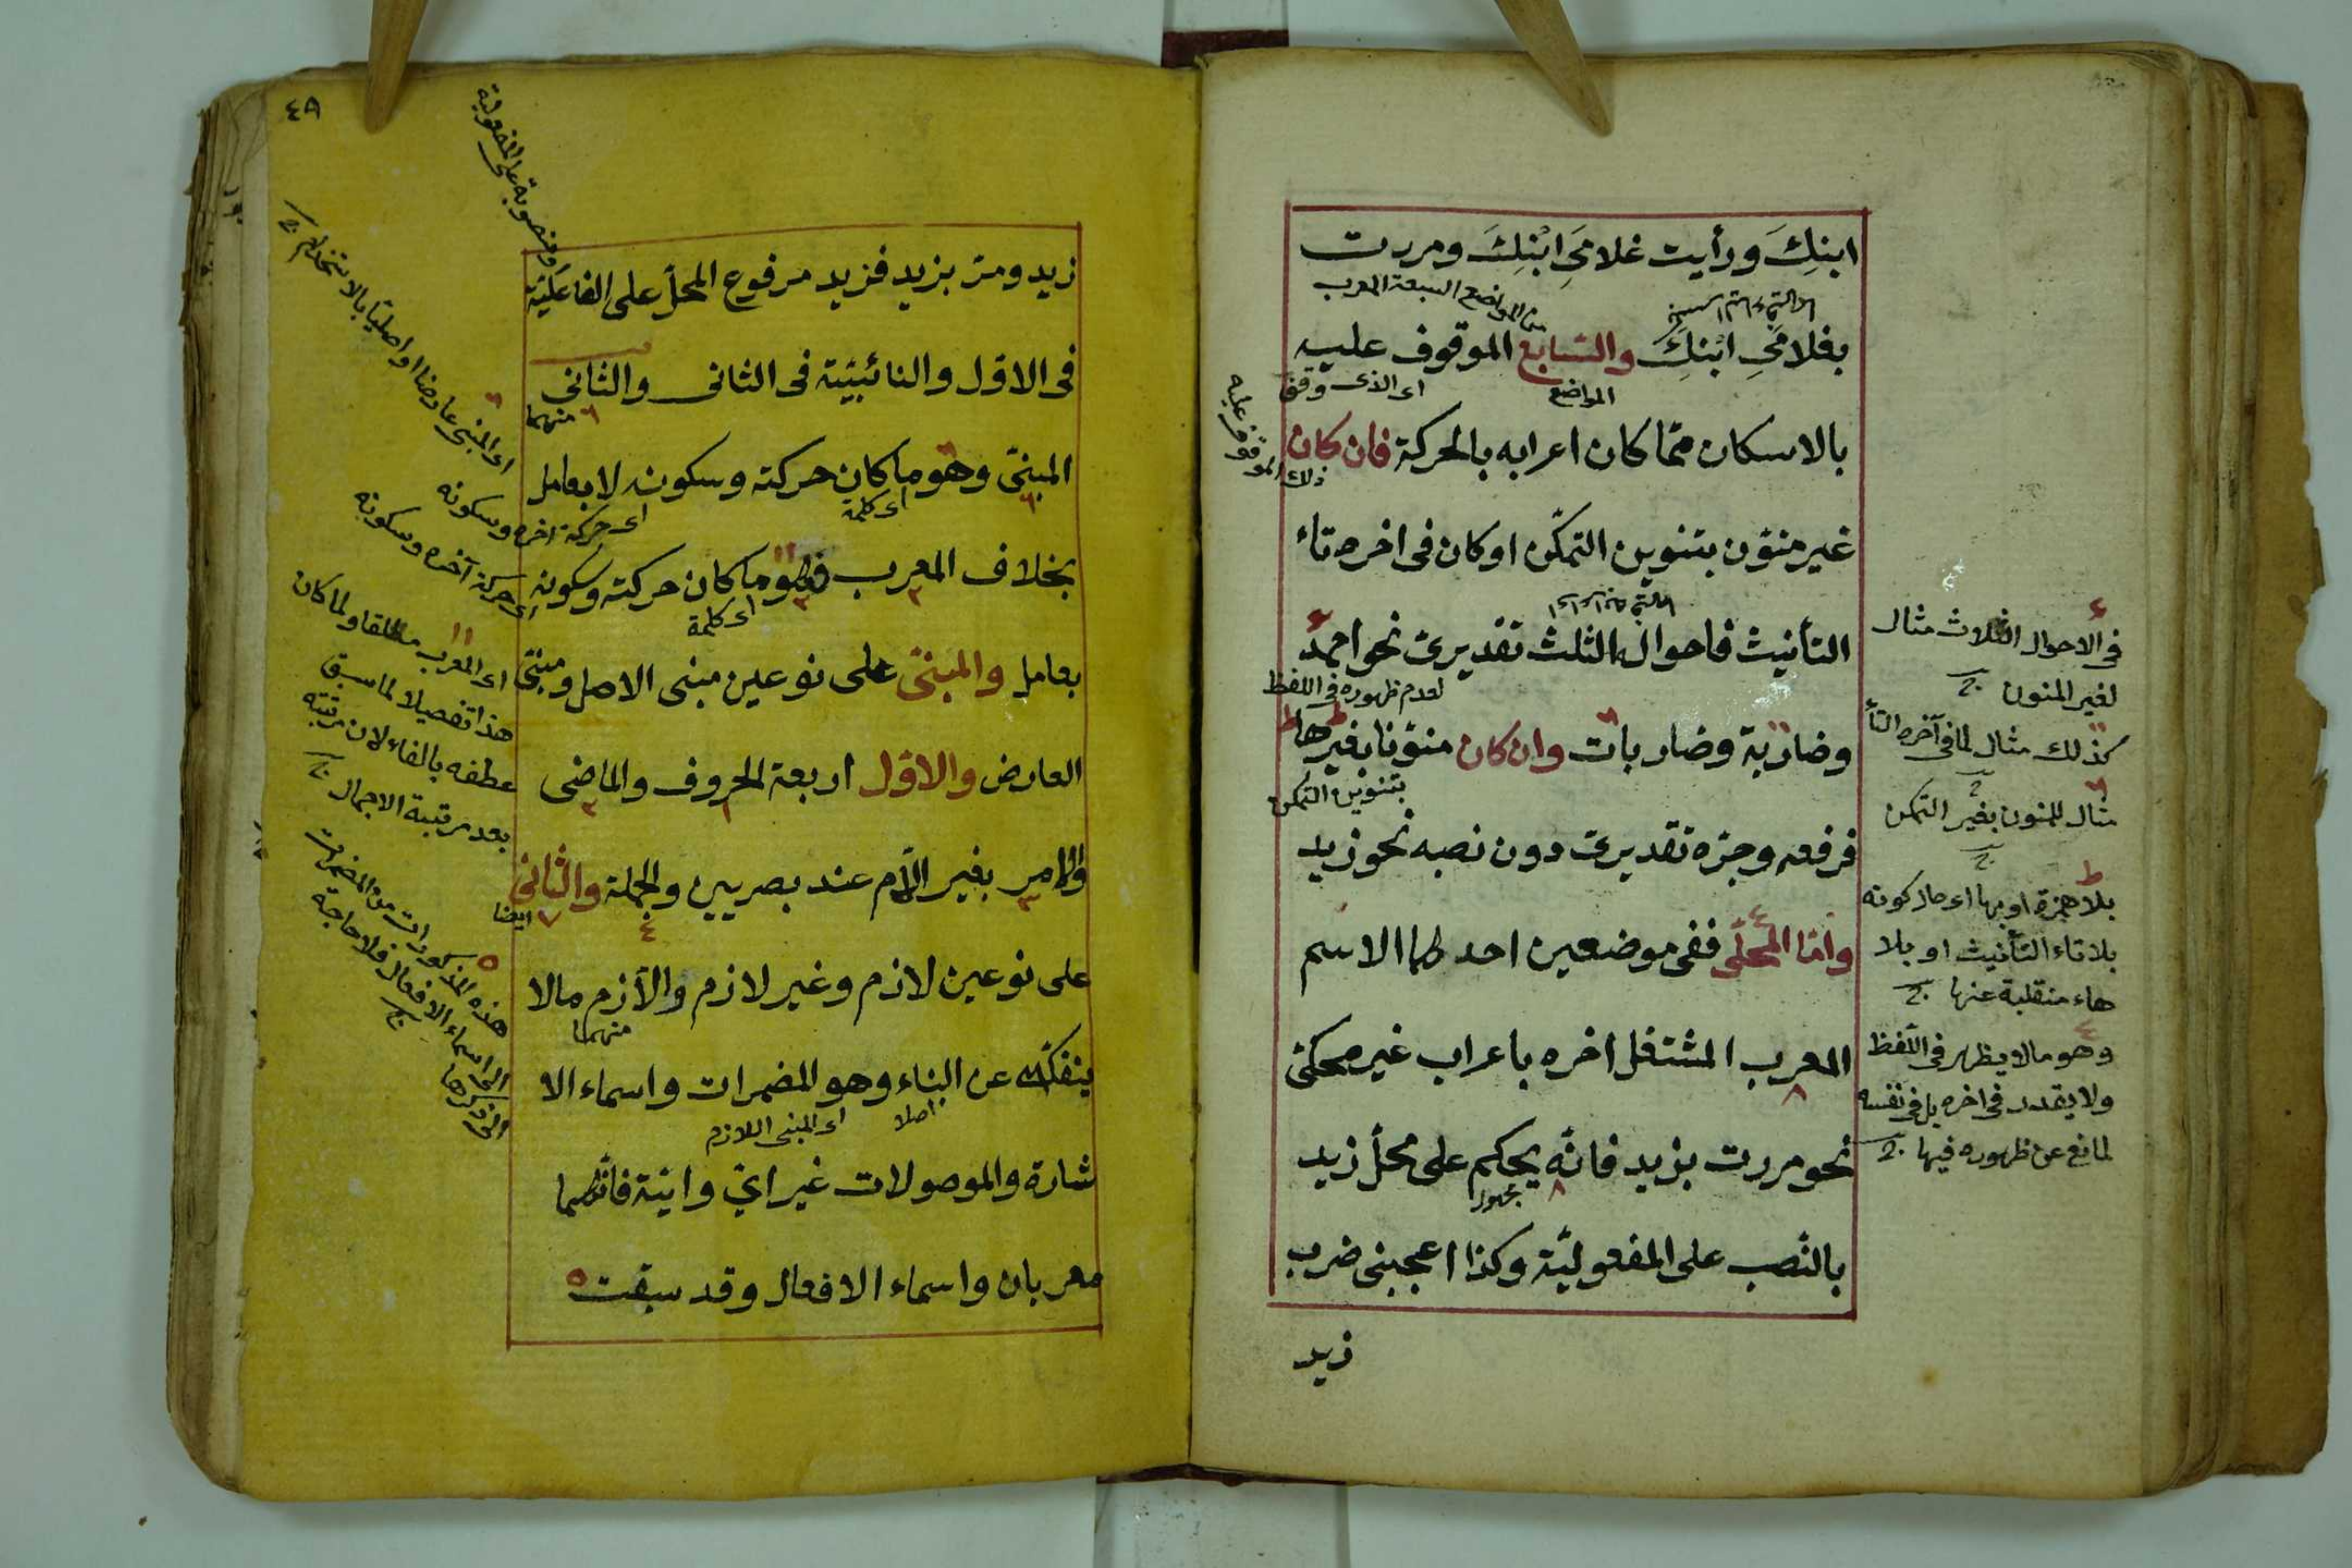 ابنِكَ ورأيت غلامَىِ ابْنِكَ ومررت
من المواضع السبعة المعرب
بغلامَىِ ابْنِكَ والسّابع الموقوف عليه
المواضع
اى الذى وقف
بالاسكان ممّا كان اعرابه بالحركة فان كان
ذلك الموقوف عليه
غير منوّن بتنوين التمكّن او كان فى اخره تاء
التأنيث فاحواله الثلث تقديرىّ نحو احمدْ
لعدم ظهوره فى اللفظ
وضاربة وضاربات وان كان منوّنا بغيرها
بتنوين التمكن
فرفعه وجرّه تقديرىّ دون نصبه نحو زيد
وامّا المحلّى ففى موضعين احدهما الاسم
المعرب المشتغل اخره باعراب غير محكىّ
نحو مررت بزيد فانّه يحكم على محلّ زيد
مجهول
بالنّصب على المفعوليّة وكذا اعجبنى ضرب
زيد
فى الاحوال الثلاث مثال
لغير المنون
كذلك مثال لما فى آخره التأ
مثال للمنون بغير التمكن
بلا همزة او بها اى حال كونه
بلا تاء التأنيث او بلا
هاء منقلبة عنها
وهو ما لا يظهر فى اللّفظ
ولا يقدر فى اخره بل فى نفسه
لمانع عن ظهوره فيها
٤٨
زيد ومرّ بزيد فزيد مرفوع المحلّ على الفاعليّة
ومنصوبة على المفعولية
فى الاوّل والنائبيّة فى الثانى والثانى
منهما
المبنىّ وهو ما كان حركته وسكونه لا بعامل
اى كلمة
اى حركة اخره وسكونه
بخلاف المعرب فهو ما كان حركته وسكونه
اى كلمة
اى حركة آخره وسكونه
بعامل والمبنىّ على نوعين مبنى الاصل ومبنىّ
العارض والاوّل اربعة الحروف والماضى
والامر بغير اللّام عند بصريين والجملة والثانى
ايضا
على نوعين لازم وغير لازم واللّازم ما لا
منهما
ينفكّ عن البناء وهو المضمرات واسماء الا
اصلا
اى المبنى اللازم
شارة والموصولات غير اىّ وايّة فانّهما
معربان واسماء الافعال وقد سبقت
اى المبنى عارضا او اصليا بالاستخدام
اى المعرب مطلقا ولما كان
هذا تفصيلا لما سبق
عطفه بالفاء لان مرتبته
بعد مرتبة الاجمال
هذه المذكورات من المضمرات
الى اسماء الافعال فلا حاجة
الى ذكرها